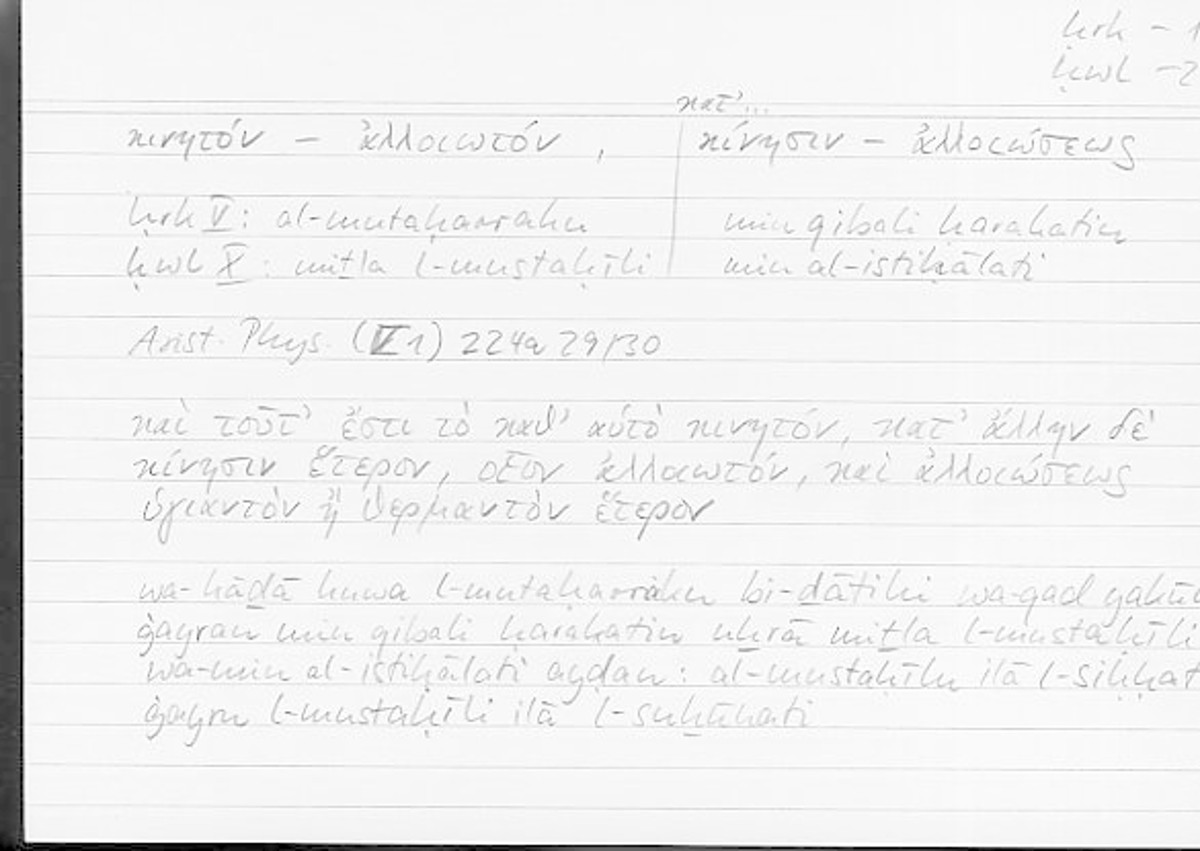 ḥrk – 1
ḥwl – 2
κατ’...
κινητόν – ἀλλοιωτόν, κίνησιν – ἀλλοιώσεως
ḥrk V: al-mutaḥarraku min qibali ḥarakatin
ḥwl X: miṯla l-mustaḥīli min al-istiḥālati
Arist. Phys. (V 1) 224a 29/30
καὶ τοῦτ’ ἔστι τὸ καθ’ αὑτὸ κινητόν, κατ’ ἄλλην δὲ
κίνησιν ἕτερον, οἷον ἀλλοιωτόν, καὶ ἀλλοιώσεως
ὑγιαντὸν ἢ θερμαντὸν ἕτερον
wa-hāḏā huwa l-mutaḥarraku bi-ḏātihi wa-qad yakū
ġayran min qibali ḥarakatin uḫrā miṯla l-mustaḥīli
wa-min al-istiḥālati ayḍan: al-mustaḥīlu ilā l-siḥḥat
ġayru l-mustaḥīli ilā l-suḫūnati